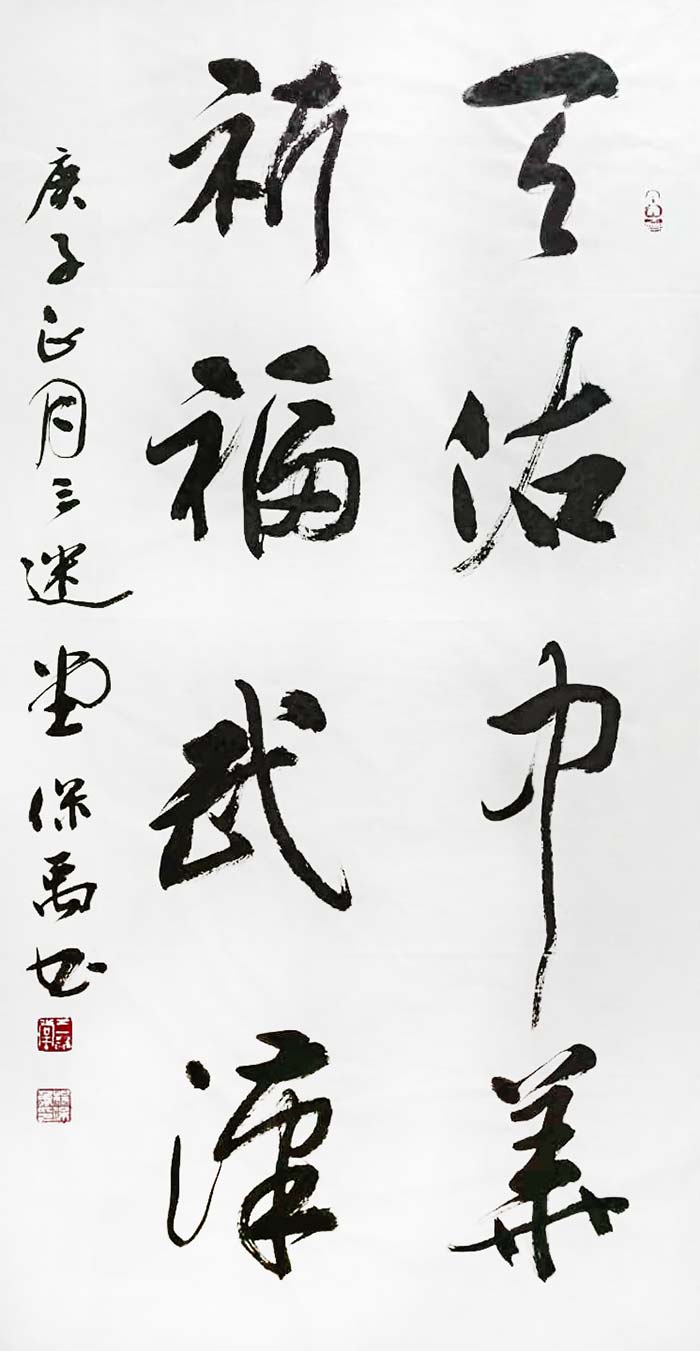 天佑中华
祈福武汉
庚子正月三迷堂保禹书